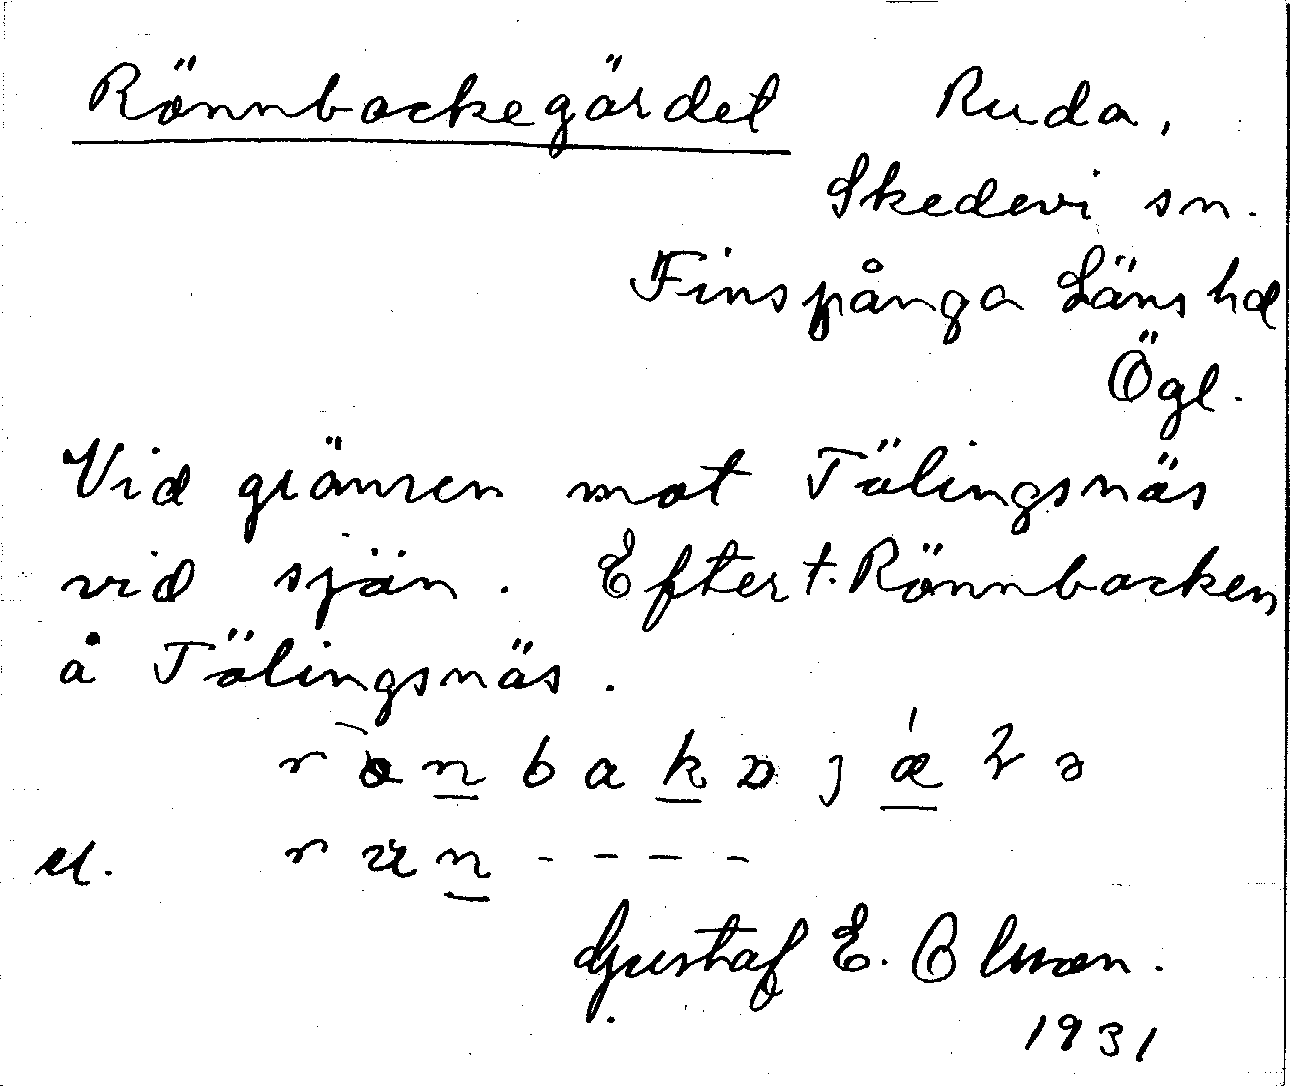 Rönnbackegärdet Ruda,
Skedevi sn.
Finspånga Läns hd
Ögl.
Vid gränsen mot Tälingsnäs
vid sjön. Efter t. Rönnbacken
å Tälingsnäs.
el.
Gustaf E. Olsson.
1931